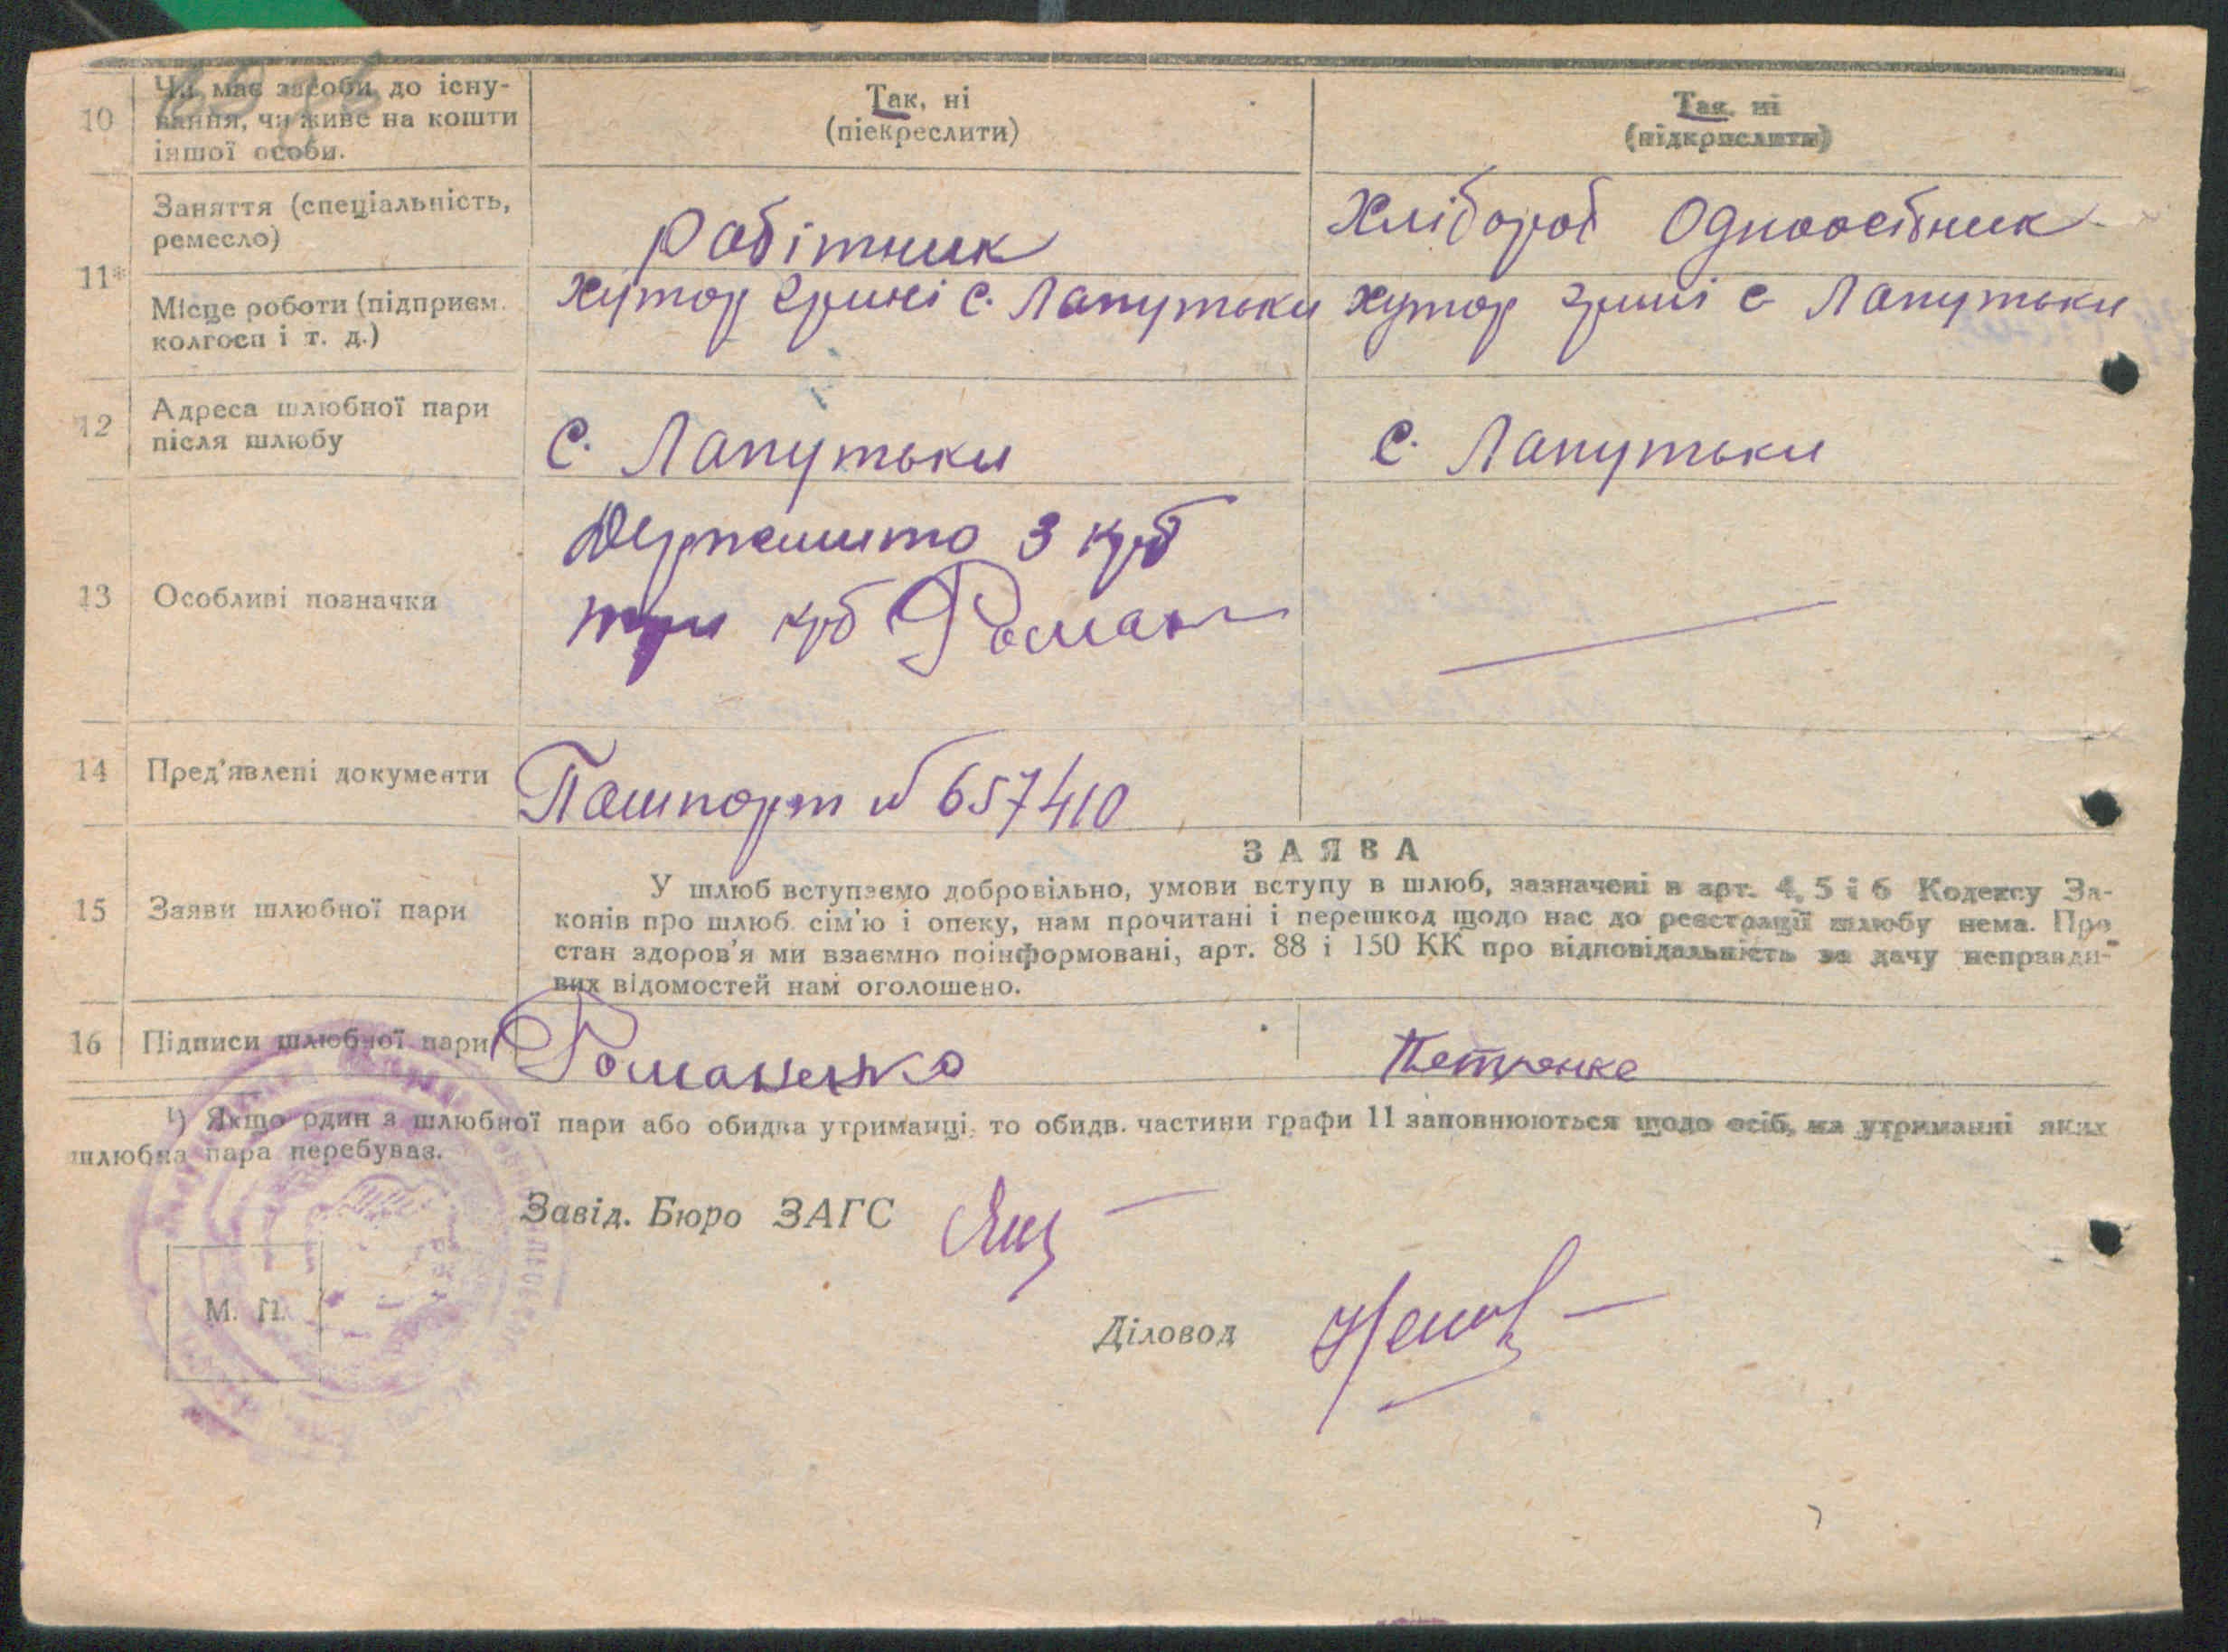 10
Чи має засоби до існу-
вання, чи живе на кошти
іншої особи.
Так, ні
(піекреслити)
Так, ні
(підкрислити)
11*
Заняття (спеціальність,
ремесло)
Робітник
Хлібороб Одноосібник
Місце роботи (підприєм.
колгосп і т. д.)
Хутор Грині с. Лапутьки
хутор Грині с Лапутьки
12
Адреса шлюбної пари
після шлюбу
с. Лапутьки
с. Лапутьки
13
Особливі позначки
Держмито 3 крб
три крб Роман
14
Пред'явлені документи
Пашпорт № 657410
15
Заяви шлюбної пари
ЗАЯВА
У шлюб вступаємо добровільно, умови вступу в шлюб, зазначені в арт. 4, 5 і 6 Кодексу За-
конів про шлюб. сім'ю і опеку, нам прочитані і перешкод щодо нас до реєстрації шлюбу нема. Про
стан здоров'я ми взаємно поінформовані, арт. 88 і 150 КК про відповідальність за дачу неправди-
вих відомостей нам оголошено.
16
Підписи шлюбної пари
Романенко
Петренке
¹) Якщо один з шлюбної пари або обидва утриманці, то обидв. частини графи 11 заповнюються щодо осіб, на утриманні яких
шлюбна пара перебуває.
Завід. Бюро ЗАГС
М. П.
Діловод